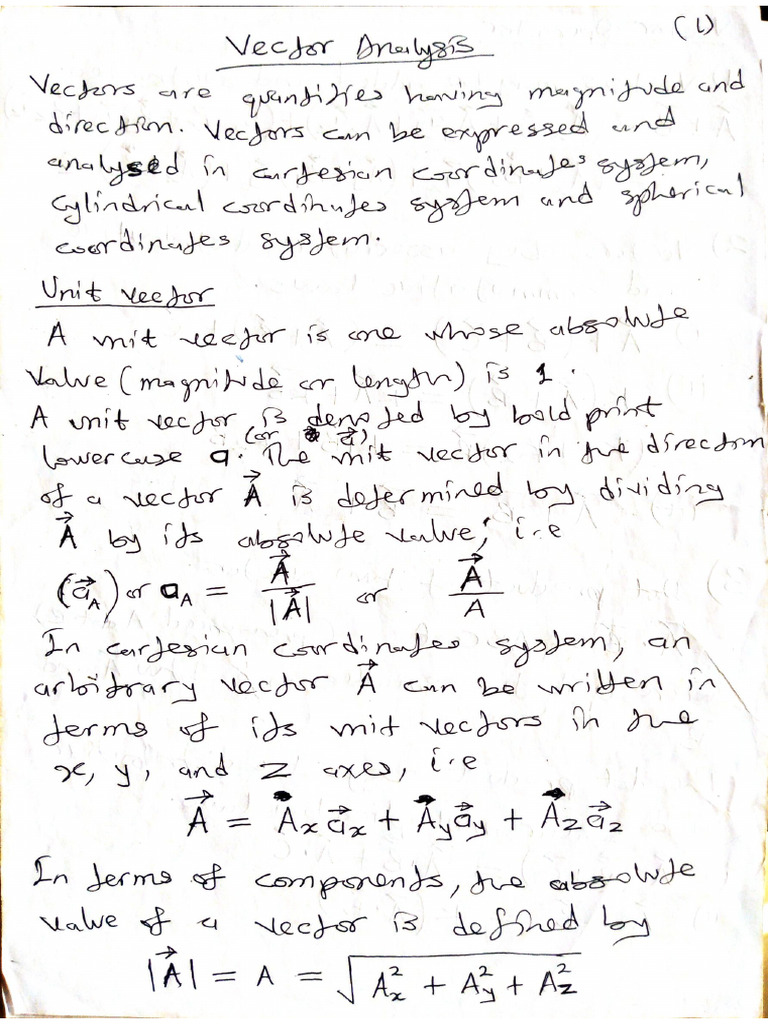 (1)
Vector Analysis
Vectors are quantities having magnitude and
direction. Vectors can be expressed and
analysed in cartesian coordinates system,
cylindrical coordinates system and spherical
coordinates system.
Unit vector
A unit vector is one whose absolute
value (magnitude or length) is 1.
A unit vector is denoted by bold print
lowercase a. (or a⃗) The unit vector in the direction
of a vector A⃗ is determined by dividing
A⃗ by its absolute value, i.e
(a⃗_A) or a_A = A⃗/|A⃗| or A⃗/A
In cartesian coordinates system, an
arbitrary vector A⃗ can be written in
terms of its unit vectors in the
x, y, and z axes, i.e
A⃗ = A_x a⃗_x + A_y a⃗_y + A_z a⃗_z
In terms of components, the absolute
value of a vector is defined by
|A⃗| = A = √(A_x² + A_y² + A_z²)